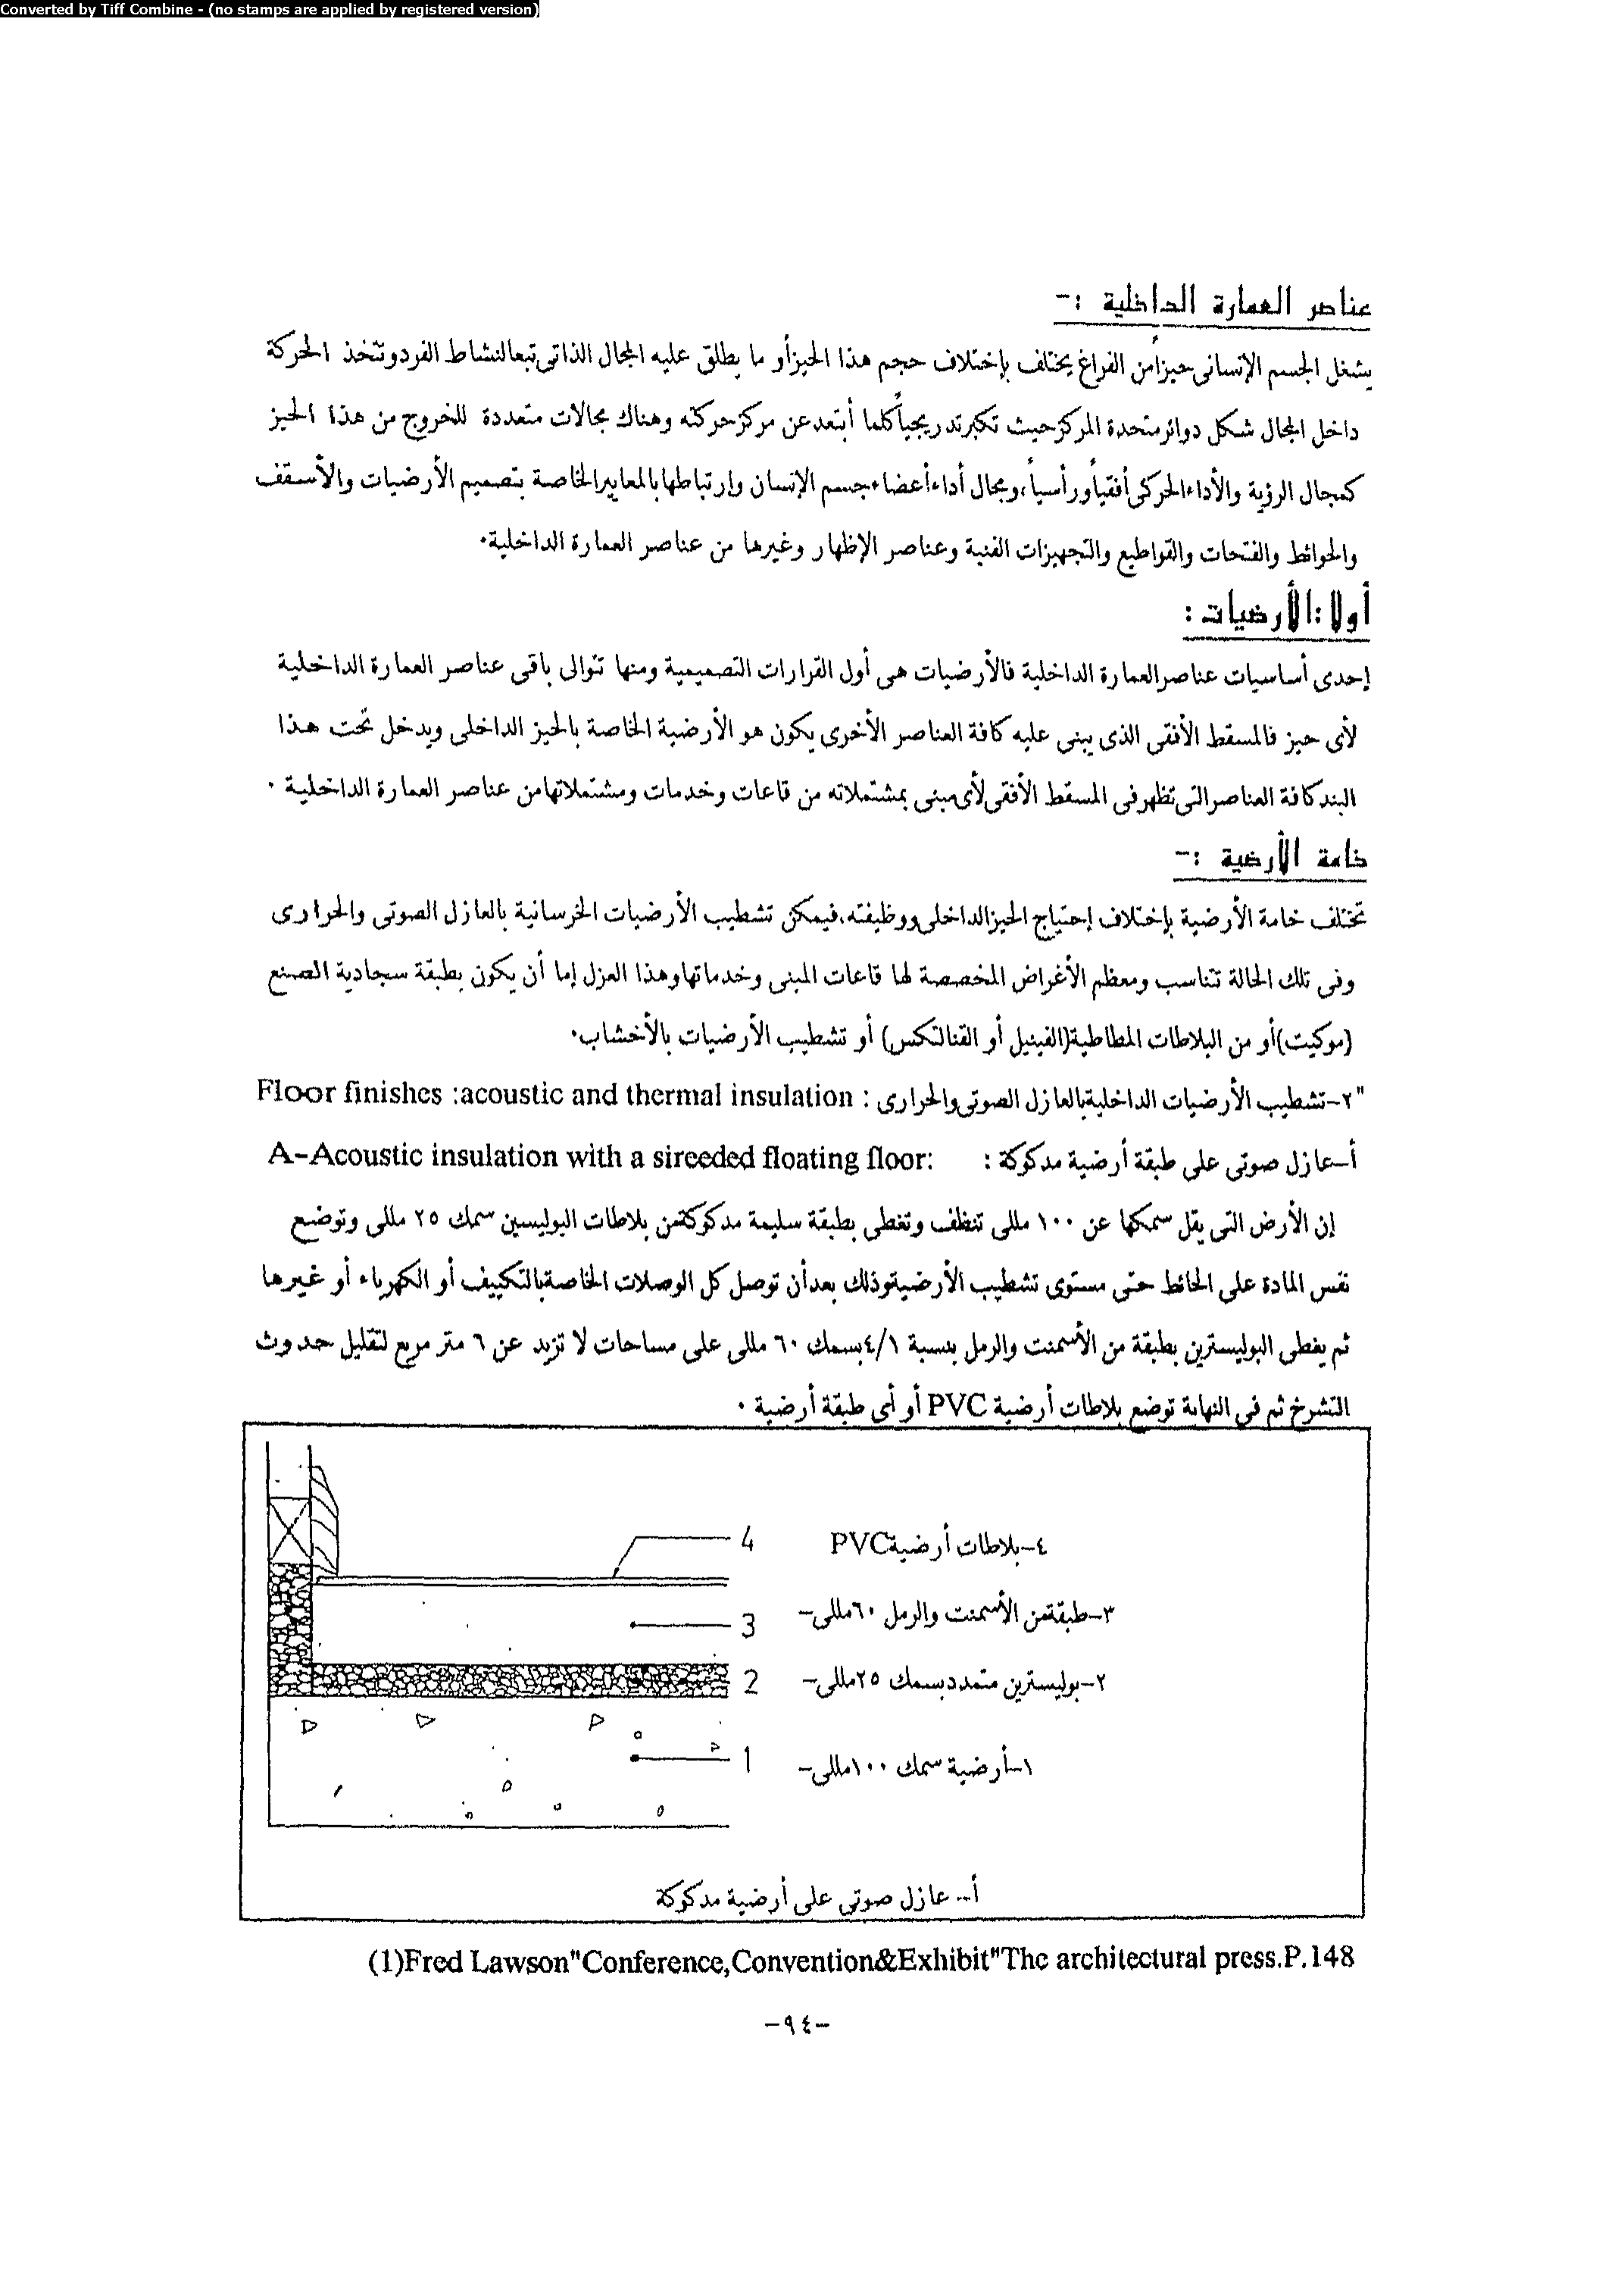 Converted by Tiff Combine - (no stamps are applied by registered version)
عناصر العمارة الداخلية :-
يشغل الجسم الإنسانى حيزاً من الفراغ يختلف بإختلاف حجم هذا الحيز أو ما يطلق عليه المجال الذاتى تبعا لنشاط الفرد وتتخذ الحركة
داخل المجال شكل دوائر متحدة المركز حيث تكبر تدريجياً كلما أبتعد عن مركز حركته وهناك مجالات متعددة للخروج من هذا الحيز
كمجال الرؤية والأداء الحركى أفقياً ورأسياً، ومجال أداء أعضاء جسم الإنسان وإرتباطها بالمعايير الخاصة بتصميم الأرضيات والأسقف
والحوائط والفتحات والقواطيع والتجهيزات الفنية وعناصر الإظهار وغيرها من عناصر العمارة الداخلية.
أولا : الأرضيات :
إحدى أساسيات عناصر العمارة الداخلية فالأرضيات هى أول القرارات التصميمية ومنها تتوالى باقى عناصر العمارة الداخلية
لأى حيز فالمسقط الأفقى الذى يبنى عليه كافة العناصر الأخرى يكون هو الأرضية الخاصة بالحيز الداخلى ويدخل تحت هذا
البند كافة العناصر التى تظهر فى المسقط الأفقى لأى مبنى بمشتملاته من قاعات وخدمات ومشتملاتها من عناصر العمارة الداخلية .
خامة الأرضية :-
تختلف خامة الأرضية بإختلاف إحتياج الحيز الداخلى ووظيفته، فيمكن تشطيب الأرضيات الخرسانية بالعازل الصوتى والحرارى
وفى تلك الحالة تتناسب ومعظم الأغراض المخصصة لها قاعات المبنى وخدماتها وهذا العزل إما أن يكون بطبقة سجادية الصنع
(موكيت) أو من البلاطات المطاطية (الفينيل أو القنالتكس) أو تشطيب الأرضيات بالأخشاب.
"٢-تشطيب الأرضيات الداخلية بالعازل الصوتى والحرارى : Floor finishes :acoustic and thermal insulation
أ-عازل صوتى على طبقة أرضية مدكوكة : A-Acoustic insulation with a sireeded floating floor:
إن الأرض التى يقل سمكها عن ١٠٠ مللى تنظف وتغطى بطبقة سليمة مدكوكة من بلاطات البوليسين سمك ٢٥ مللى وتوضع
نفس المادة على الحائط حتى مستوى تشطيب الأرضية وذلك بعد أن توصل كل الوصلات الخاصة بالتكييف أو الكهرباء أو غيرها
ثم يغطى البوليسترين بطبقة من الأسمنت والرمل بنسبة ٤/١ بسمك ٦٠ مللى على مساحات لا تزيد عن ٦ متر مربع لتقليل حدوث
التشرخ ثم فى النهاية توضع بلاطات أرضية PVC أو أى طبقة أرضية .
4 ٤-بلاطات أرضية PVC
3 ٣-طبقة من الأسمنت والرمل ٦٠مللى-
2 ٢-بوليسترين متمدد بسمك ٢٥مللى-
1 ١-أرضية سمك ١٠٠مللى-
أ- عازل صوتى على أرضية مدكوكة
(1)Fred Lawson"Conference,Convention&Exhibit"The architectural press.P.148
-٩٤-